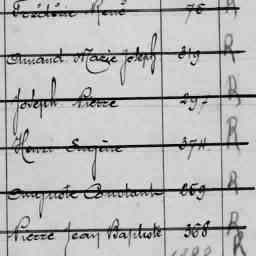 Frédéric René 76 R
Armand Marie Joseph 319 R
Joseph Pierre 297 R
Henri Eugène 374 R
Auguste Constant 269 R
Pierre Jean Baptiste 368 R
R